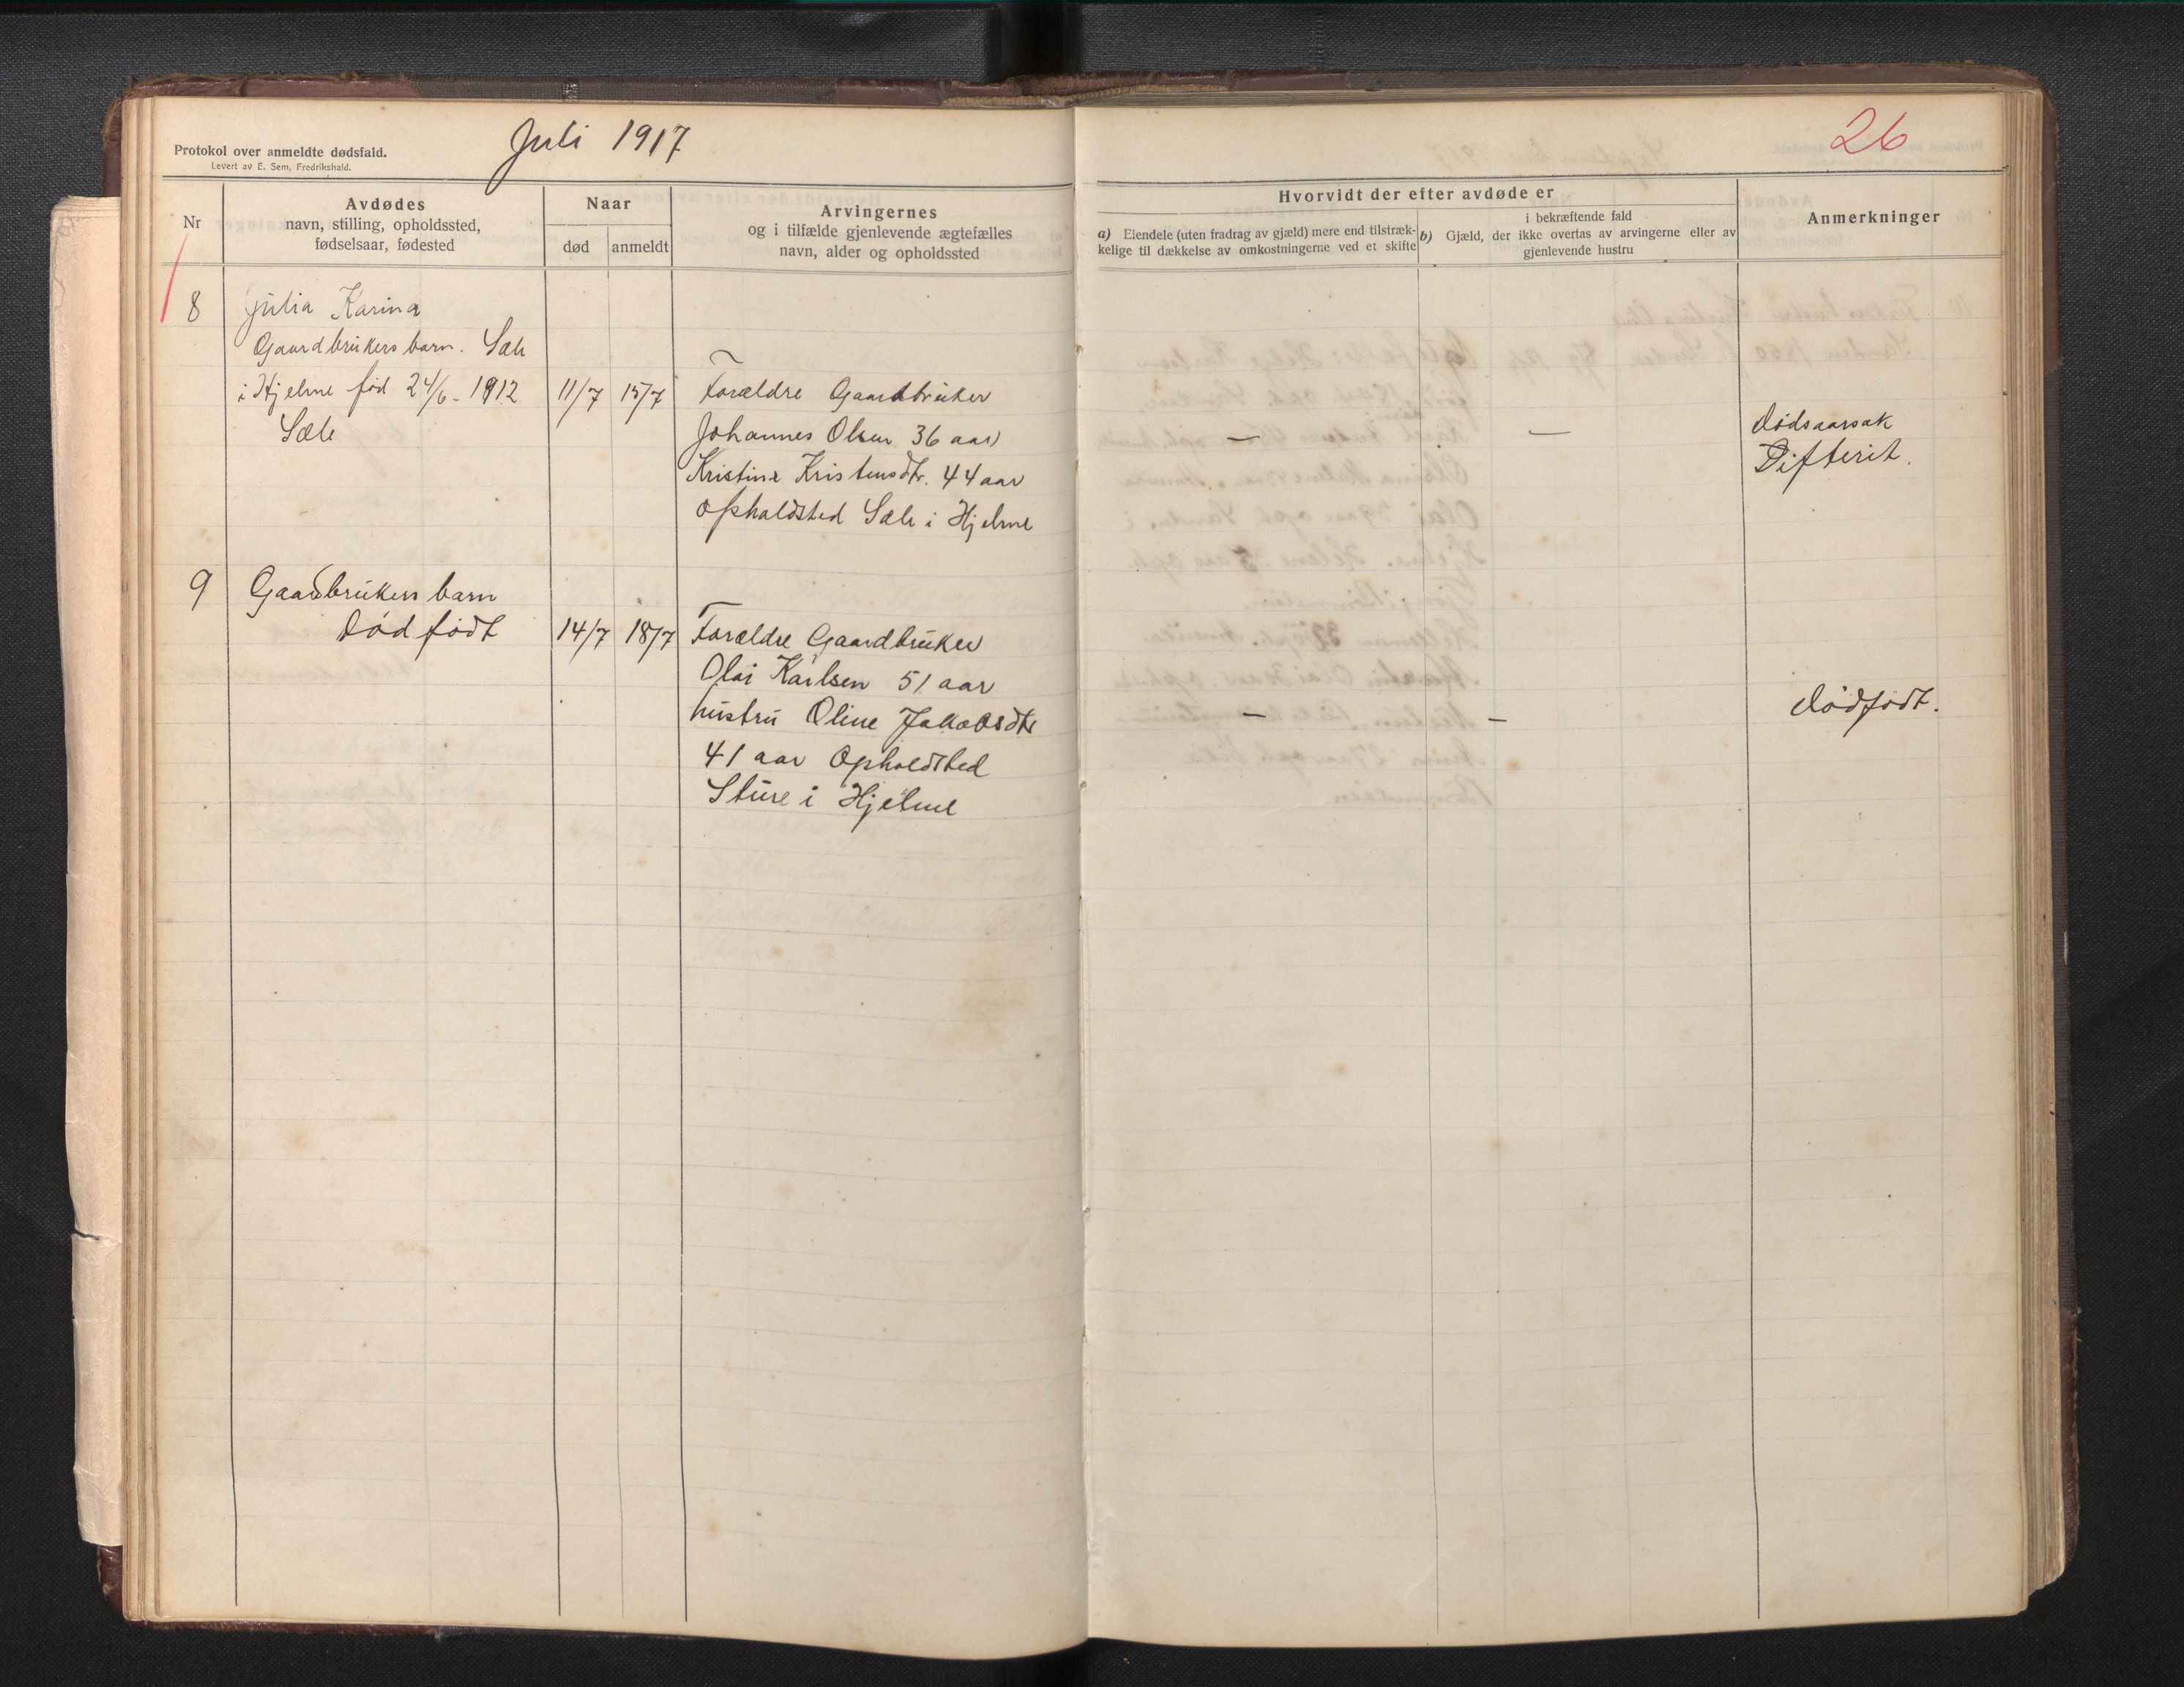 Protokol over anmeldte dødsfald.
Levert av E. Sem, Fredrikshald.
Juli 1917
26
Nr
Avdødes
navn, stilling, opholdssted,
fødselsaar, fødested
Naar
død
anmeldt
Arvingernes
og i tilfælde gjenlevende ægtefælles
navn, alder og opholdssted
Hvorvidt der efter avdøde er
a) Eiendele (uten fradrag av gjæld) mere end tilstræk-
kelige til dækkelse av omkostningerne ved et skifte
i bekræftende fald
b) Gjæld, der ikke overtas av arvingerne eller av
gjenlevende hustru
Anmerkninger
8
Julia Karina
Gaardbrukers barn. Sæle
i Hjelme fød 24/6 - 1912
Sæle
11/7
15/7
Forældre Gaardbruker
Johannes Olsen 36 aar
Kristine Kristensdtr. 44 aar
Opholdsted Sæle i Hjelme
—
—
Dødsaarsak
Difterit.
9
Gaardbrukers barn
Dødfødt
14/7
18/7
Forældre Gaardbruker
Olai Karlsen 51 aar
hustru Oline Jakobsdtr
41 aar Opholdsted
Sture i Hjelme
—
—
Dødfødt.